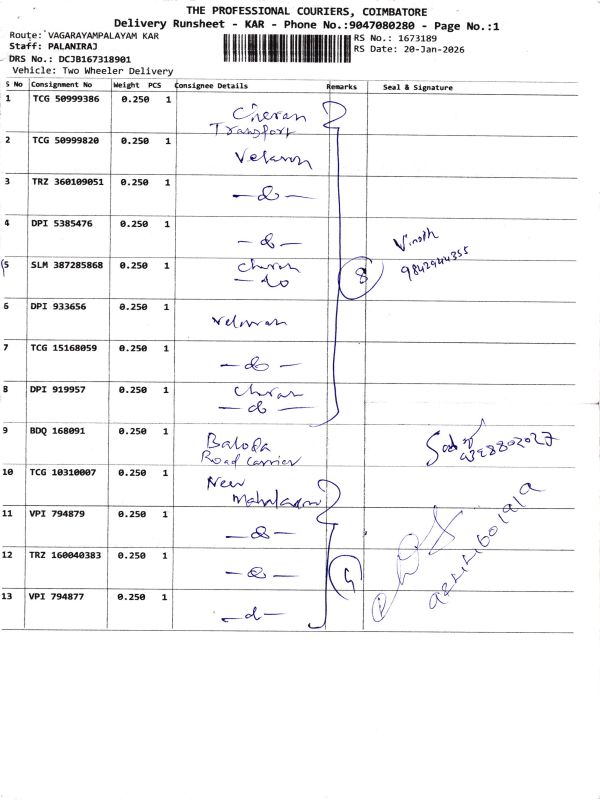 THE PROFESSIONAL COURIERS, COIMBATORE
Delivery Runsheet - KAR - Phone No.:9047080280 - Page No.:1
Route: VAGARAYAMPALAYAM KAR
Staff: PALANIRAJ
DRS No.: DCJB167318901
Vehicle: Two Wheeler Delivery
RS No.: 1673189
RS Date: 20-Jan-2026
S No Consignment No Weight PCS Consignee Details Remarks Seal & Signature
1 TCG 50999386 0.250 1 Cheran Transport
2 TCG 50999820 0.250 1
3 TRZ 360109051 0.250 1 -do-
4 DPI 5385476 0.250 1 -do-
Vinoth
9842944355
5 SLM 387285868 0.250 1 -do 8
6 DPI 933656 0.250 1
7 TCG 15168059 0.250 1 -do-
8 DPI 919957 0.250 1 -do-
9 BDQ 168091 0.250 1 Baroda
Road Carrier
10 TCG 10310007 0.250 1 New
11 VPI 794879 0.250 1 -do-
12 TRZ 160040383 0.250 1 -do-
13 VPI 794877 0.250 1 -do-